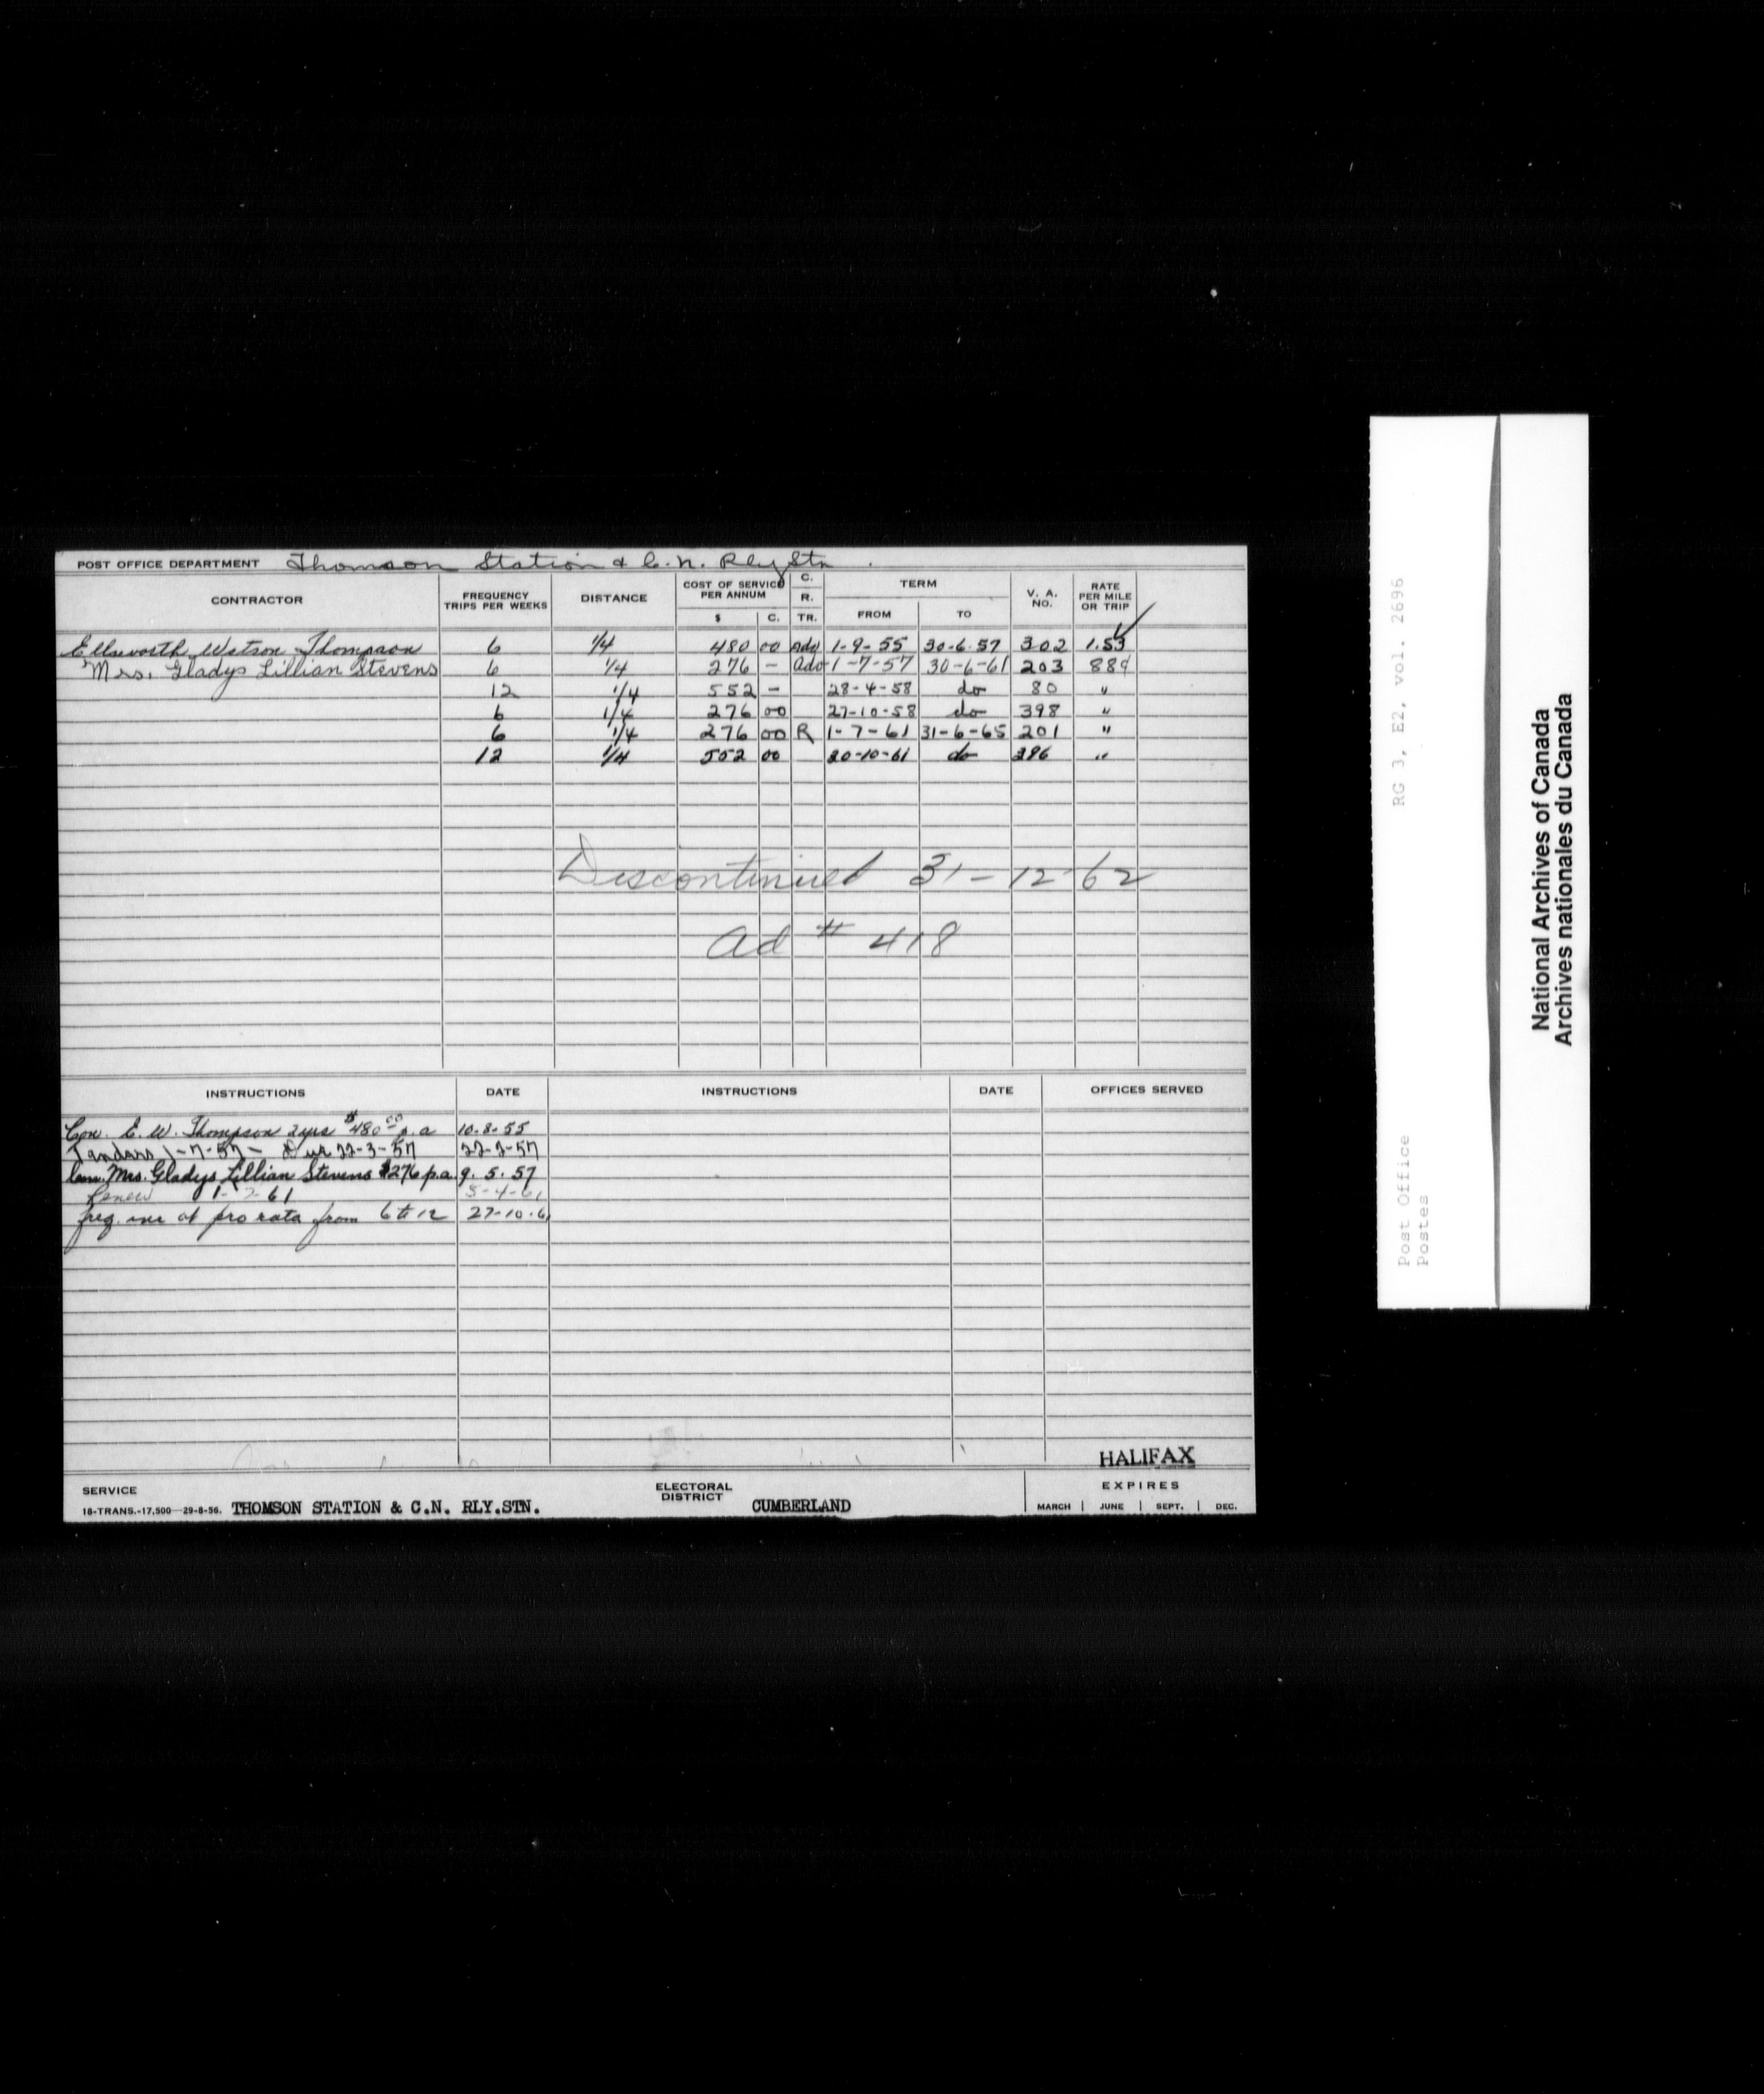 POST OFFICE DEPARTMENT Thomson Station & C.N. Rly Stn.
CONTRACTOR FREQUENCY TRIPS PER WEEKS DISTANCE COST OF SERVICE PER ANNUM $ C. C. R. TR. TERM FROM TO V. A. NO. RATE PER MILE OR TRIP
Ellsworth Watson Thompson 6 1/4 480 00 Adv 1-9-55 30-6-57 302 1.53
Mrs. Gladys Lillian Stevens 6 1/4 276 - Adv 1-7-57 30-6-61 203 88¢
12 1/4 552 - 28-4-58 do 80 "
6 1/4 276 00 27-10-58 do 398 "
6 1/4 276 00 R 1-7-61 31-6-65 201 "
12 1/4 552 00 20-10-61 do 296 "
Discontinued 31-12-62
Ad # 418
INSTRUCTIONS DATE INSTRUCTIONS DATE OFFICES SERVED
Con. E. W. Thompson 2 yrs $480 00 p.a 10-8-55
Tenders 1-7-57 - Due 22-3-57 22-2-57
Con. Mrs. Gladys Lillian Stevens $276 p.a. 9.5.57
Renew 1-7-61 5-4-61
freq. incr at pro rata from 6 to 12 27-10-61
HALIFAX
SERVICE ELECTORAL DISTRICT EXPIRES
18-TRANS.-17,500—29-8-56. THOMSON STATION & C.N. RLY.STN. CUMBERLAND MARCH | JUNE | SEPT. | DEC.
Post Office RG 3, E2, vol. 2696
Postes
National Archives of Canada
Archives nationales du Canada